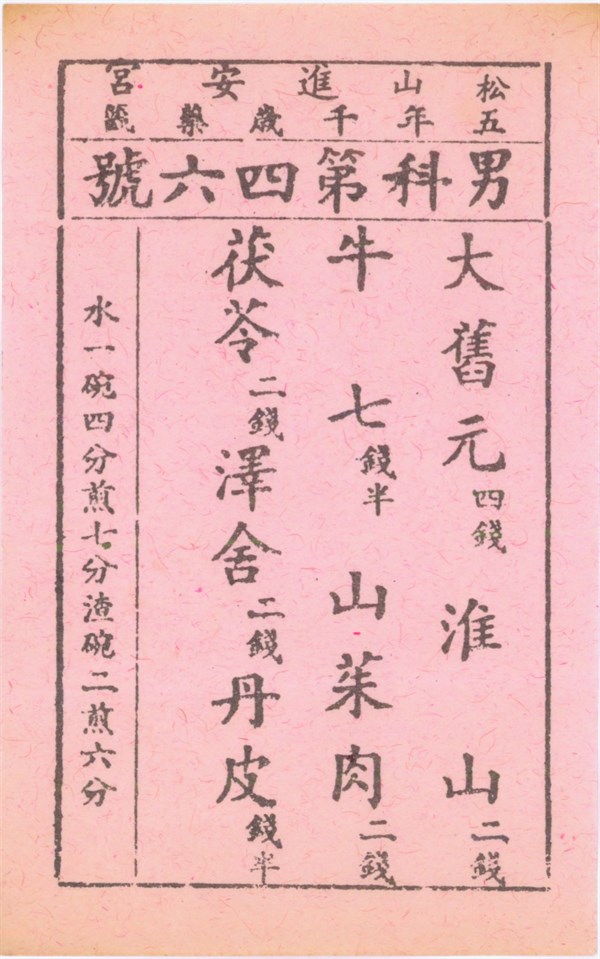 松山進安宮
五年千歲藥籤
男科第四六號
大舊元四錢 淮山二錢
牛七錢半 山茱肉二錢
茯苓二錢 澤舍二錢 丹皮錢半
水一碗四分煎七分渣碗二煎六分